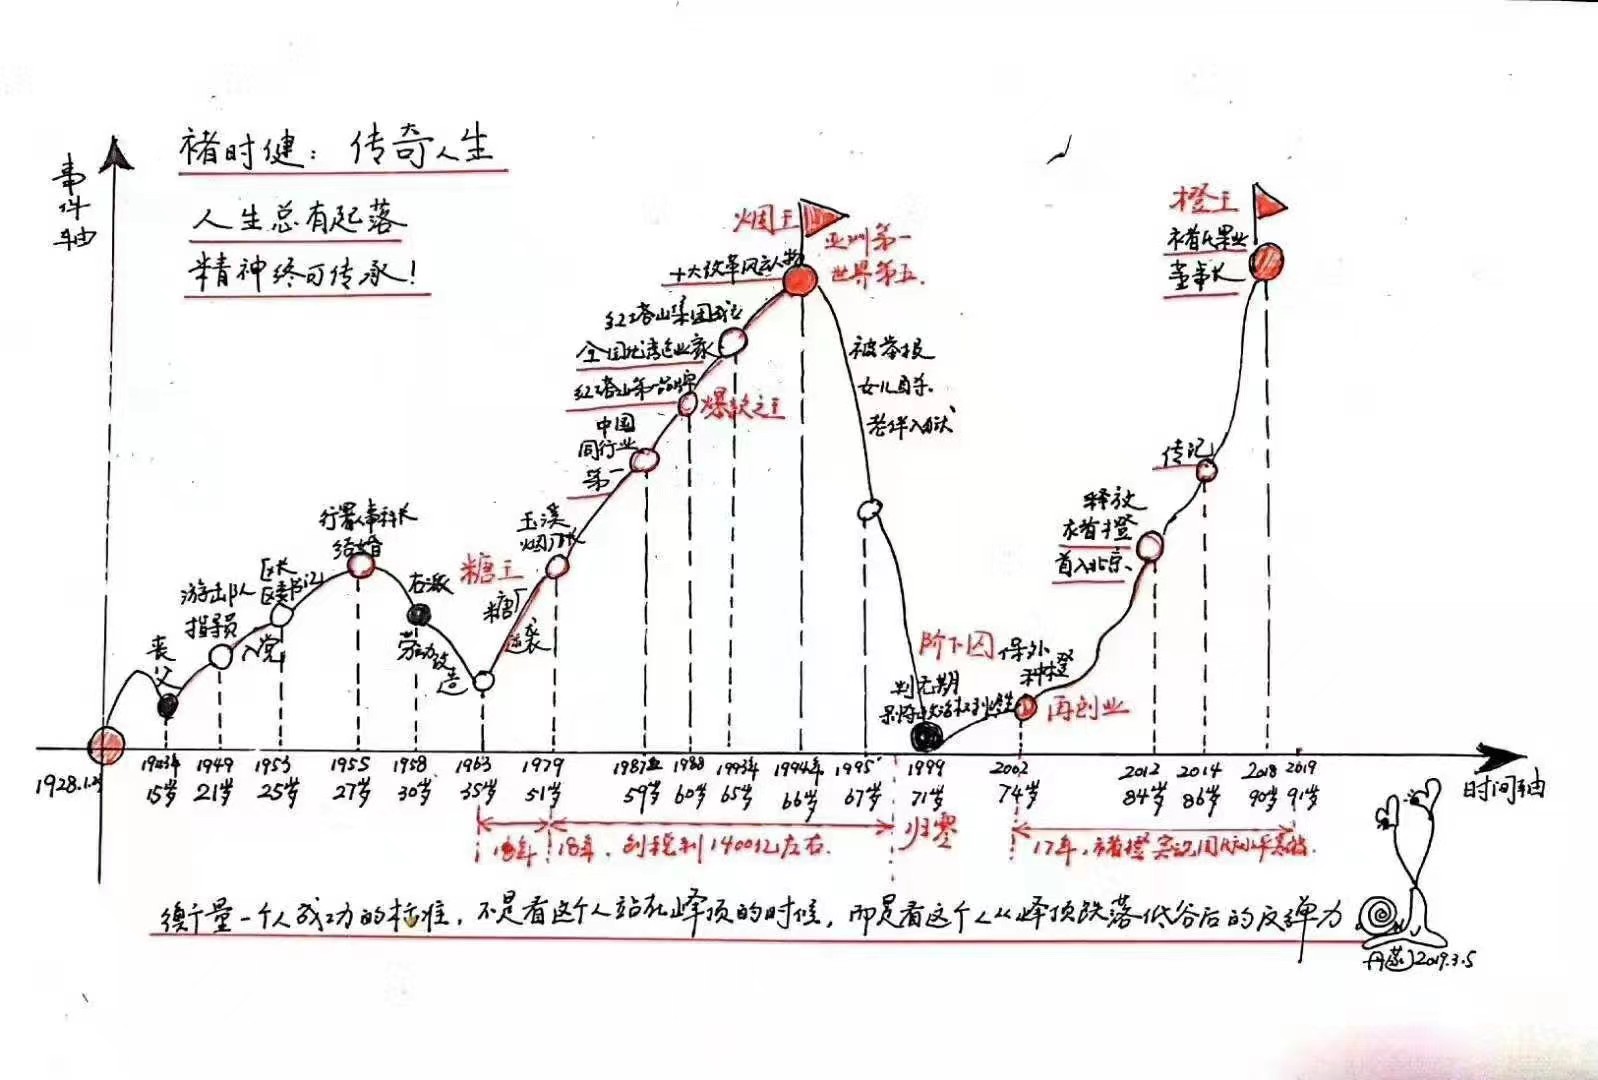 褚时健：传奇人生
人生总有起落
精神终可传承！
事件轴
烟王
亚洲第一
世界第五.
十大改革风云人物
红塔山集团成立
全国优秀企业家
红塔山第一品牌
爆款之王
中国
同行业
第一
玉溪
烟厂长
糖王
糖厂
逆袭
行署人事科长
结婚
区长
区委书记
游击队
指导员
入党
丧父
右派
劳动改造
被举报
女儿自杀.
老伴入狱
阶下囚
判无期
保外
种橙
再创业
释放
褚橙
首入北京.
传记
橙王
褚氏果业
董事长
1928.1.23
1943年
15岁
1949
21岁
1953
25岁
1955
27岁
1958
30岁
1963
35岁
1979
51岁
1987年
59岁
1988
60岁
1993年
65岁
1994年
66岁
1995
67岁
1999
71岁
2002
74岁
2012
84岁
2014
86岁
2018
90岁
2019
91岁
时间轴
18年
18年，创税利1400亿左右.
归零
17年，褚橙
衡量一个人成功的标准，不是看这个人站在峰顶的时候，而是看这个人从峰顶跌落低谷后的反弹力
2019.3.5